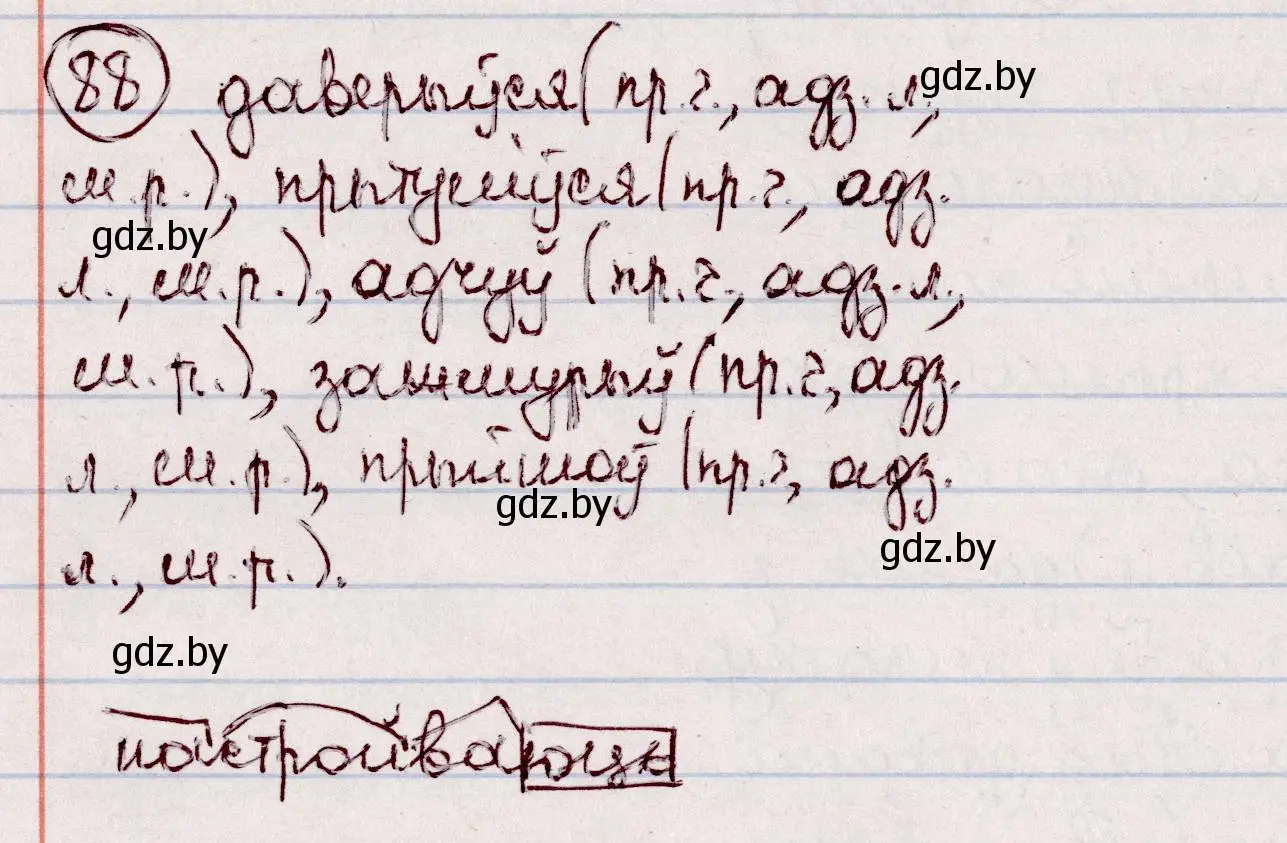 88 даверыўся (пр.г., адз.л., gdz.by
м.р.), прытуліўся (пр.г., адз.
gdz.by
л., м.р.), адчуў (пр.г., адз.л.,
м.р.), зажмурыў (пр.г., адз.
л., м.р.), прыйшоў (пр.г, адз.
gdz.by
л., м.р.). gdz.by
gdz.by
настройваюцца